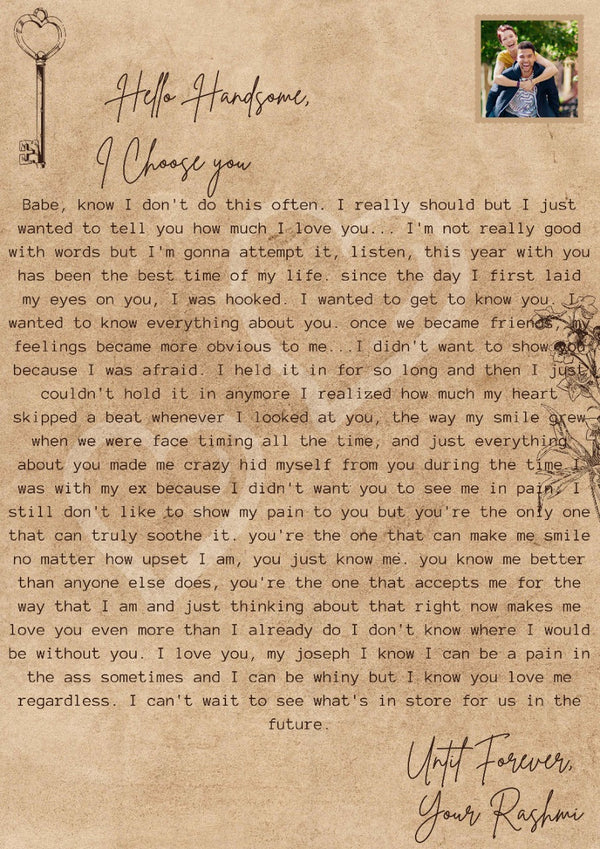 Hello Handsome,
I Choose you
Babe, know I don't do this often. I really should but I just
wanted to tell you how much I love you... I'm not really good
with words but I'm gonna attempt it, listen, this year with you
has been the best time of my life. since the day I first laid
my eyes on you, I was hooked. I wanted to get to know you. I
wanted to know everything about you. once we became friends, my
feelings became more obvious to me...I didn't want to show you
because I was afraid. I held it in for so long and then I just
couldn't hold it in anymore I realized how much my heart
skipped a beat whenever I looked at you, the way my smile grew
when we were face timing all the time, and just everything
about you made me crazy hid myself from you during the time I
was with my ex because I didn't want you to see me in pain. I
still don't like to show my pain to you but you're the only one
that can truly soothe it. you're the one that can make me smile
no matter how upset I am, you just know me. you know me better
than anyone else does, you're the one that accepts me for the
way that I am and just thinking about that right now makes me
love you even more than I already do I don't know where I would
be without you. I love you, my joseph I know I can be a pain in
the ass sometimes and I can be whiny but I know you love me
regardless. I can't wait to see what's in store for us in the
future.
Until Forever,
Your Rashmi